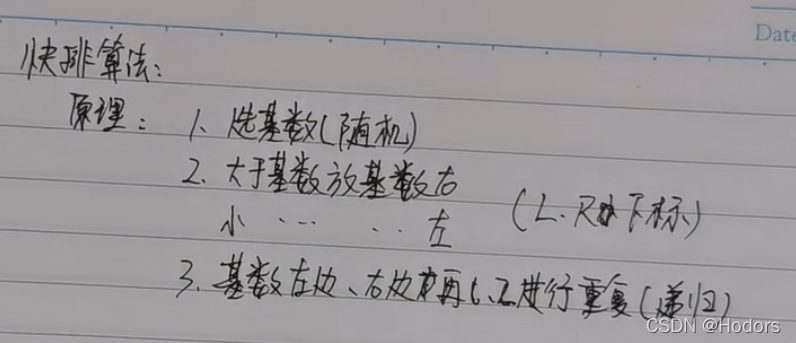 Date
快排算法:
原理: 1、选基数(随机)
2、大于基数放基数右
小 ··· ·· 左 (L、R 下标)
3、基数左边、右边 再1、2进行重复(递归)
CSDN @Hodors